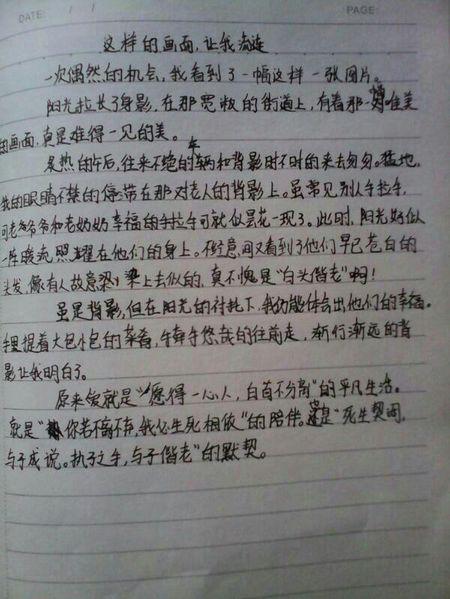 DATE: / /
PAGE:
这样的画面,让我流连
一次偶然的机会,我看到了一幅这样一张图片。
阳光拉长了身影,在那宽敞的街道上,有着那一幅唯美
的画面,真是难得一见的美。
炙热的午后,往来不绝的车辆和背影时不时的来去匆匆。猛地,
我的眼睛不禁的停滞在那对老人的背影上。虽常见别人手拉手,
可老爷爷和老奶奶幸福的手拉手可就似昙花一现了。此时,阳光好似
一阵暖流照耀在他们的身上。不经意间又看到了他们早已苍白的
头发,像有人故意染上去似的,真不愧是“白头偕老”啊!
虽是背影,但在阳光的衬托下,我仍能体会出他们的幸福。
手里提着大包小包的菜肴,手牵手悠哉的往前走,渐行渐远的背
影让我明白了。
原来爱就是“愿得一心人,白首不分离”的平凡生活。
就是“你若不离不弃,我必生死相依”的陪伴。这是“死生契阔,
与子成说。执子之手,与子偕老”的默契。